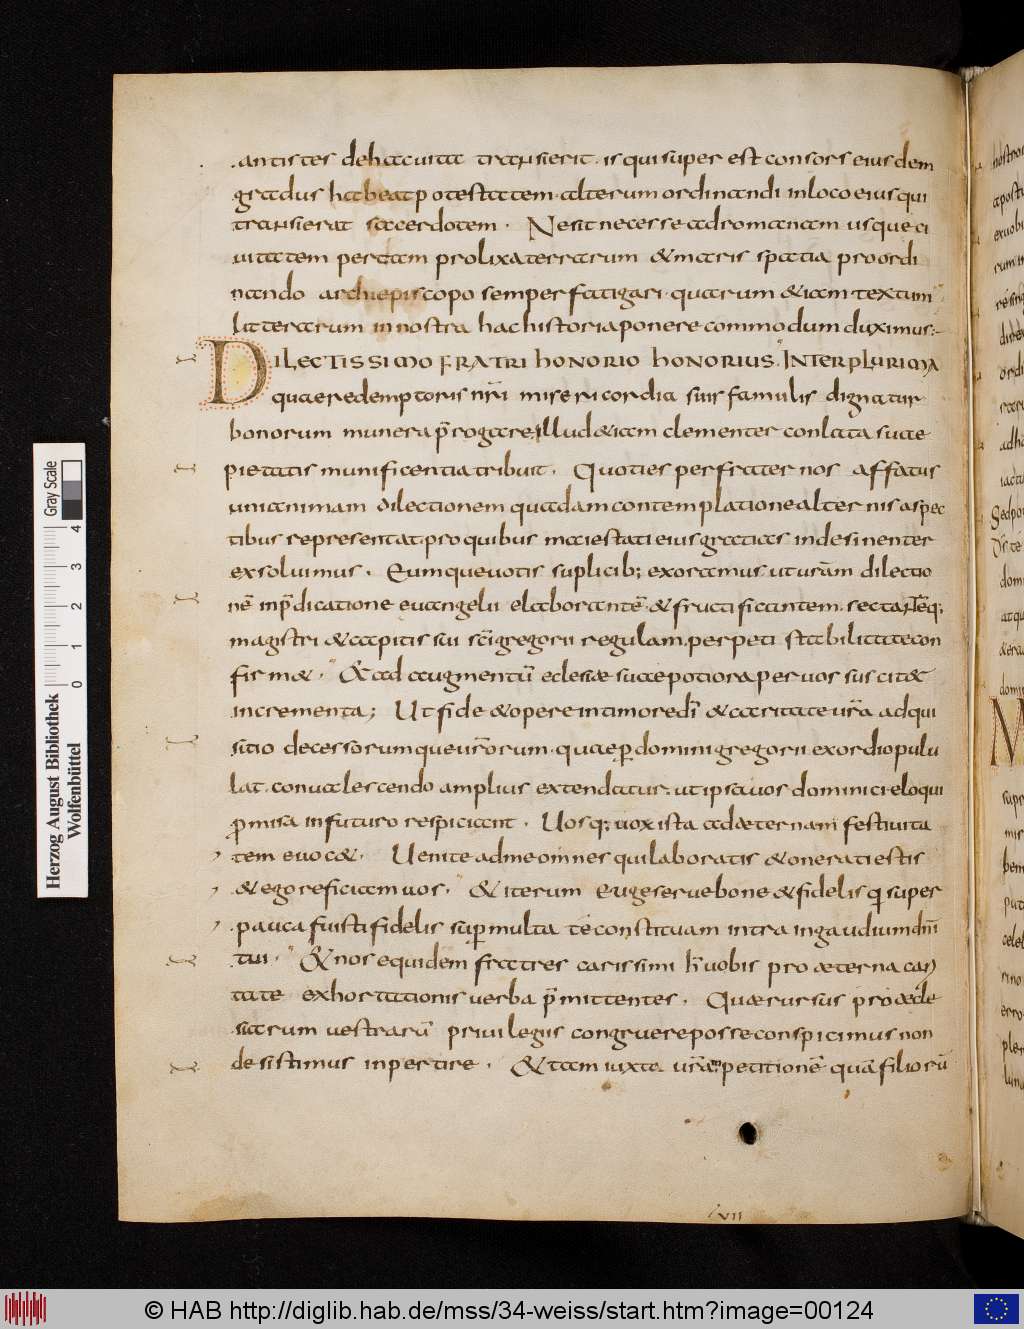 antistes dehac uita transierit. is qui super est consors eiusdem
gradus habeat potestatem. alterum ordinandi inloco eius qui
transierat sacerdotem. Nesit necesse adromanam usque ci
uitatem pertam prolixa terrarum & maris spatia proordi
nando archiepiscopo semper fatigari. quarum & iam textum
litterarum innostra hac historia ponere commodum duximus:
DILECTISSIMO FRATRI HONORIO HONORIUS. INTER PLURIMA
quae redemptoris nr̄i misericordia suis famulis dignatur
bonorum munera p̄rogare. illud & iam clementer conlata suae
pietatis munificentia tribuit. Quoties per frater nos affatus
unianimam dilectionem quadam contemplatione alternis aspec
tibus representat. pro quibus maiestati eius gratias indesinenter
exsoluimus. Eumque uotis suplicib; exoramus. ut uram̄ dilectio
nē inp̄dicatione euangelii elaborantē & fructificantem. sectantēq;
magistri & capitis sui sc̄i gregorii regulam. perpeti stabilitate con
firm&. & ad augmentū eclesiae suae potiora per uos suscit&
incrementa; Ut fide & opere intimore dī & caritate ur̄a adqui
sitio decessorumque ur̄orum. quae p̱ domini gregorii exordio pulu
lat. conualescendo amplius extendatur. ut ipsa uos dominici eloqui
ꝓmisa infuturo respiciant. Uosq; uox ista adaeternam festiuita
tem euoc&. Uenite adme omnes qui laboratis & onerati estis
& ego reficiam uos. & iterum Euge serue bone & fidelis q super
pauca fuisti fidelis sup multa te constituam intra ingaudium dn̄i
tui. & nos equidem fratres carissimi h uobis pro aeterna cari
tate exhortationis uerba p̄mittentes. Quae rursus pro aecle
siarum uestrarū priuilegiis congruere posse conspicimus non
desistimus inpertire. & tam iuxta ur̄am petitionē quā filiorū
VII
Gray Scale
4 3 2 1 0
Herzog August Bibliothek
Wolfenbüttel
© HAB http://diglib.hab.de/mss/34-weiss/start.htm?image=00124